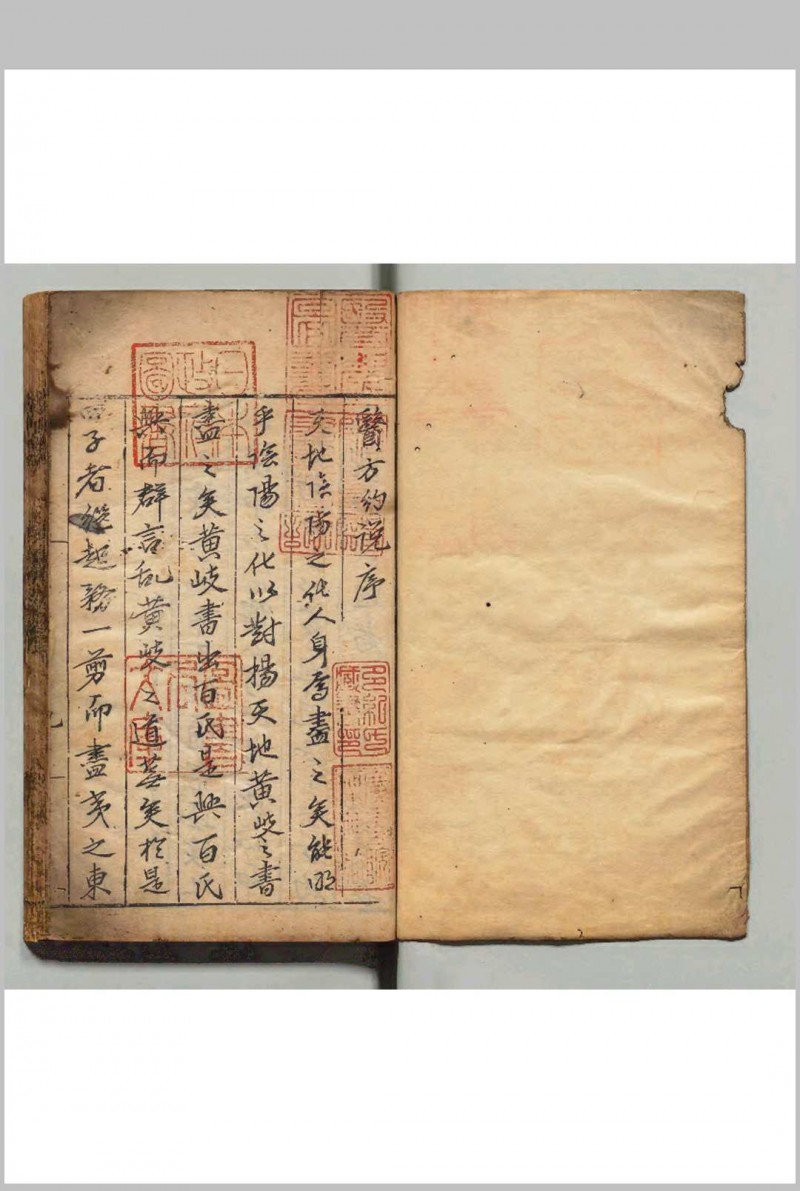 醫方約說序
天地陰陽之化人身焉盡之矣能明
乎陰陽之化以對揚天地黃岐之書
盡之矣黃岐書出百氏是興百氏
興而群言乱黃岐之道蕪矣於是
子者繼起務一剪而盡夷之東